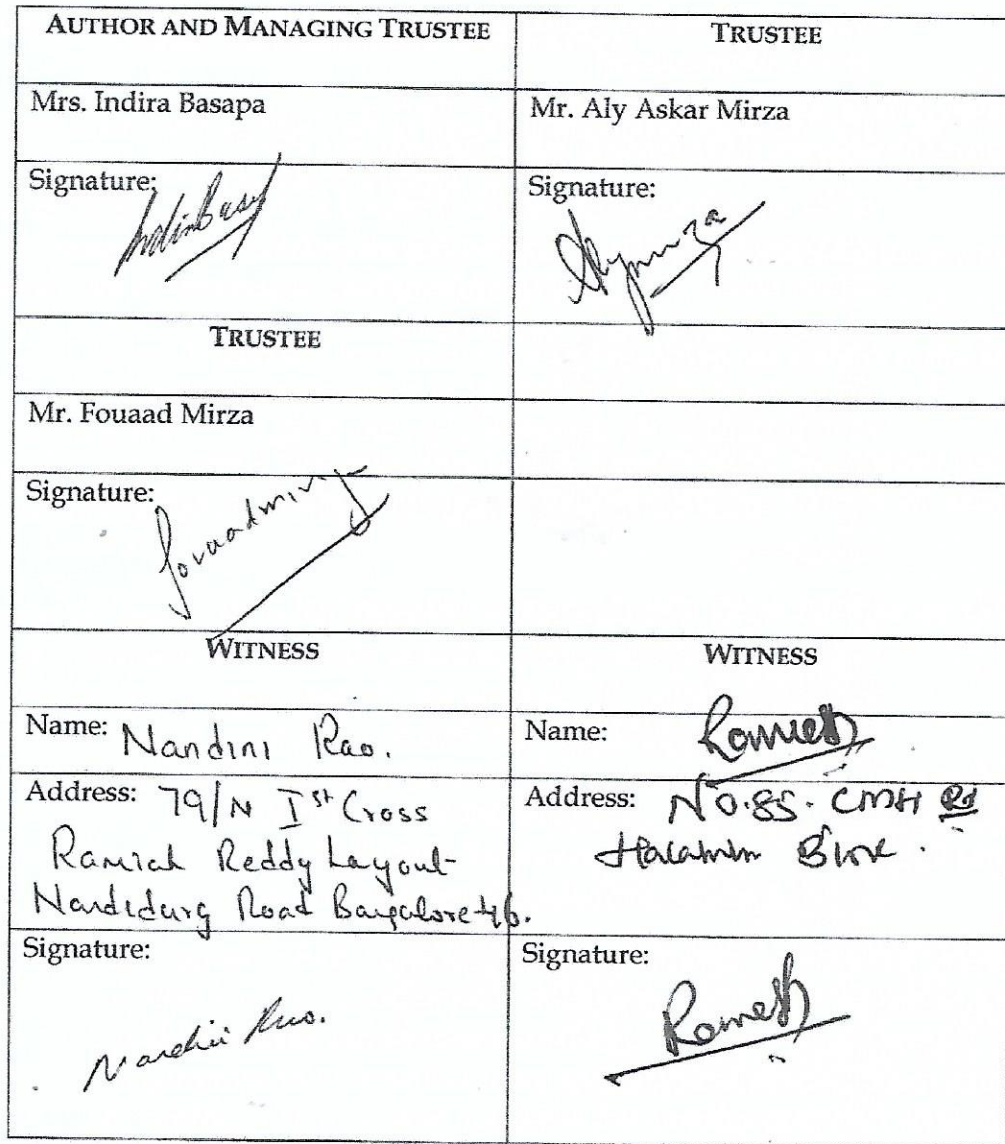 AUTHOR AND MANAGING TRUSTEE
TRUSTEE
Mrs. Indira Basapa
Mr. Aly Askar Mirza
Signature: IndiraBasa
Signature: Alymirza
TRUSTEE
Mr. Fouaad Mirza
Signature: fouaadmirza
WITNESS
WITNESS
Name: Nandini Rao.
Name: Ramesh
Address: 79/N Ist Cross
Ramiah Reddy Layout
Nandidurg Road Bangalore-46.
Address: No.85. CMH Rd
Signature: Nandini Rao.
Signature: Ramesh